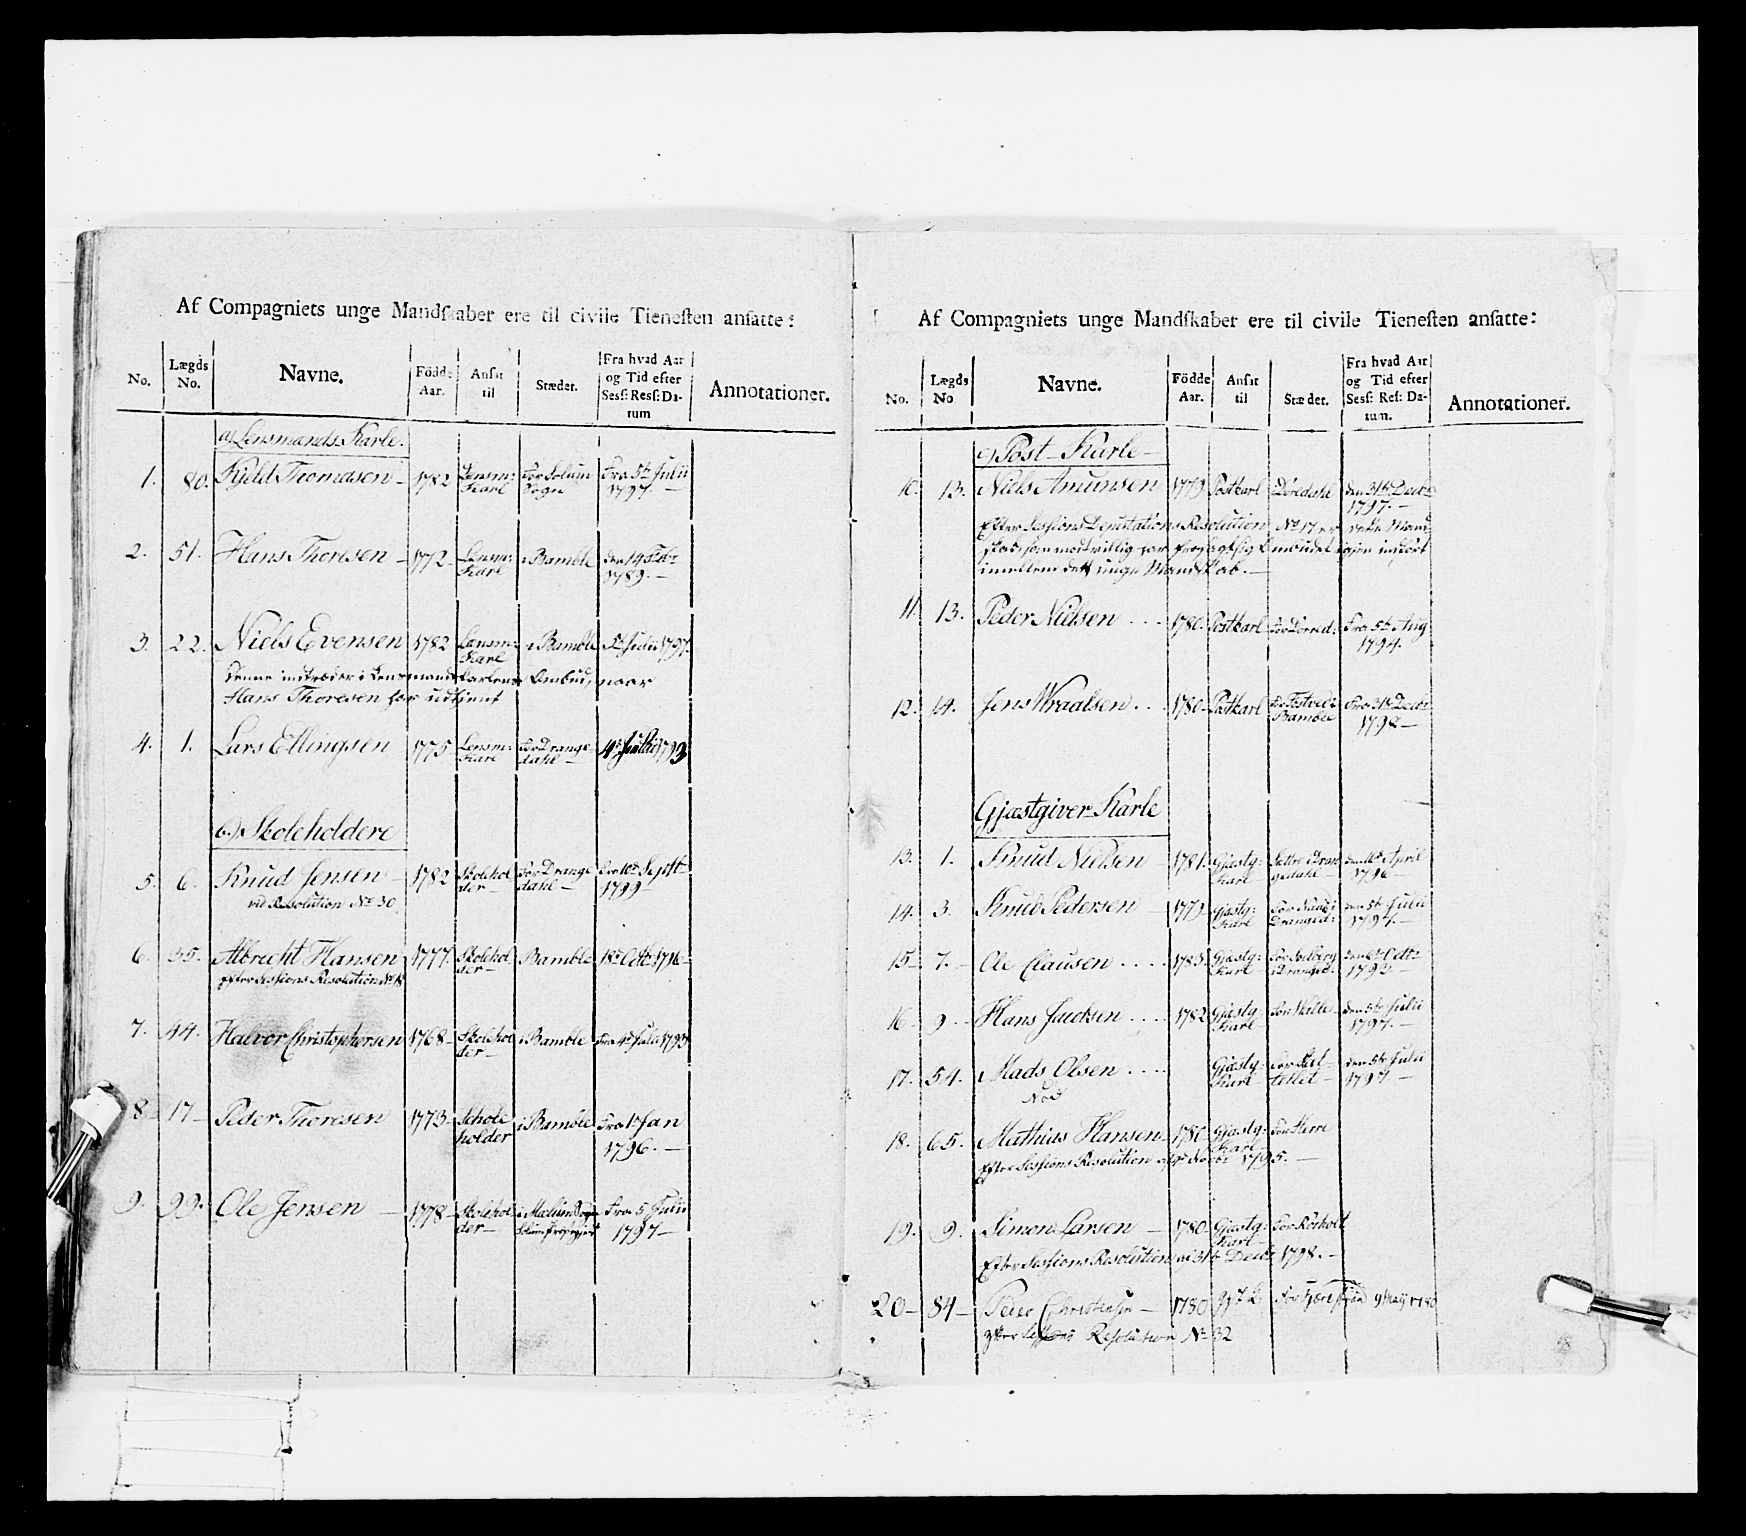 Af Compagniets unge Mandſkaber ere til civile Tieneſten anſatte:
No. Lægds No. Navne. Födde Aar. Anſat til Stædet. Fra hvad Aar og Tid efter Sesſ: Resſ: Datum Annotationer.
a) Lensmands Karle.
1. 80. Kjeld Thomasen 1782 Lensm: Karl For Solum Sogn Fra 5te Julii 1797.
2. 51. Hans Thoresen 1772 Lensm: Karl i Bamble den 14 Febr 1789.
3. 22. Niels Evensen 1782 Lensm: Karl i Bamble 5te Julii 1797.
Denne indtræder i Lensmandskarlens Ombud, naar
Hans Thoresen har udtjent
4. 1. Lars Ellingsen 1775 Lensm: Karl For Drangedahl 4de Julii 1793
b.) Skoleholdere
5. 6. Knud Jensen 1782 Skoleholder For Drangedahl Fra 10de Septbr 1799
vid Resolution No 30
6. 35. Albrecht Hansen 1777. Skoleholder Bamble 18de Octbr 1796
efter Sessions Resolution No 18
7. 44. Halvor Christophersen 1768 Skoleholder i Bamble Fra 4de Julii 1793
8 17 Peder Thoresen 1773 Schole holder i Bamble Fra 1te Jan 1796.
9. 99. Ole Jensen 1778 Skoleholder i Melum Sogn Solum Præstegjeld Fra 5 Julii 1797
Af Compagniets unge Mandſkaber ere til civile Tieneſten anſatte:
No. Lægds No Navne. Födde Aar. Anſat til Stædet. Fra hvad Aar og Tid efter Sesſ: Reſ: Datum. Annotationer.
c) Post-Karle
10. 13. Niels Amunsen 1779 Postkarl Döredahl den 31te Decbr 1797.
Efter Sessions Deputations Resolution No 17 er dette Mand
skab, som modvillig har frasagt sig Ombudet igjen indfört
imellem dett unge Mandskab.
11. 13. Peder Nielsen 1780. Postkarl For Dörred: Fra 5te Aug 1794.
12. 14. Jens Wraalsen 1780 Postkarl For Tostved i Bamble Fra 31te Decbr 1798
Gjæstgiver-Karle
13. 1. Knud Nielsen 1781. Gjæstg: Karl i Drangedahl den 11te April 1796
14. 3. Knud Pedersen 1779 Gjæstg: Karl For Dranged: den 5te Julii 1797.
15 7. Ole Clausen 1783 Gjæstg: Karl For Solberg i Dranged: den 6te Octbr 1793
16 9 Hans Jacobsen 1782 Gjæstg Karl For den 5te Julii 1797.
17. 54. Mads Olsen Gjæstg: Karl For den 5te Julii 1797.
18. 65. Mathias Hansen 1780 Gjæstg: Karl For Herre
Efter Sessions Resolution af Novbr 1795.
19. 9. Simon Larsen 1780. Gjæstg: Karl For Rörholt
Efter Sessions Resolution af 31te Decbr 1798.
20 84 Peder Christensen 1780 For 9 Maij 1780
efter Sessions Resolution No 32